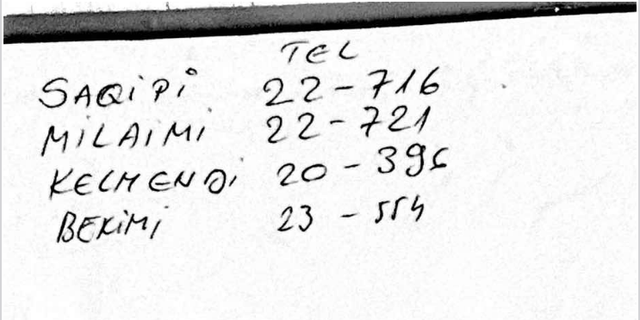 TEL
SAQiPi 22-716
MiLAiMi 22-721
KELMENDi 20-396
BEKiMi 23-554